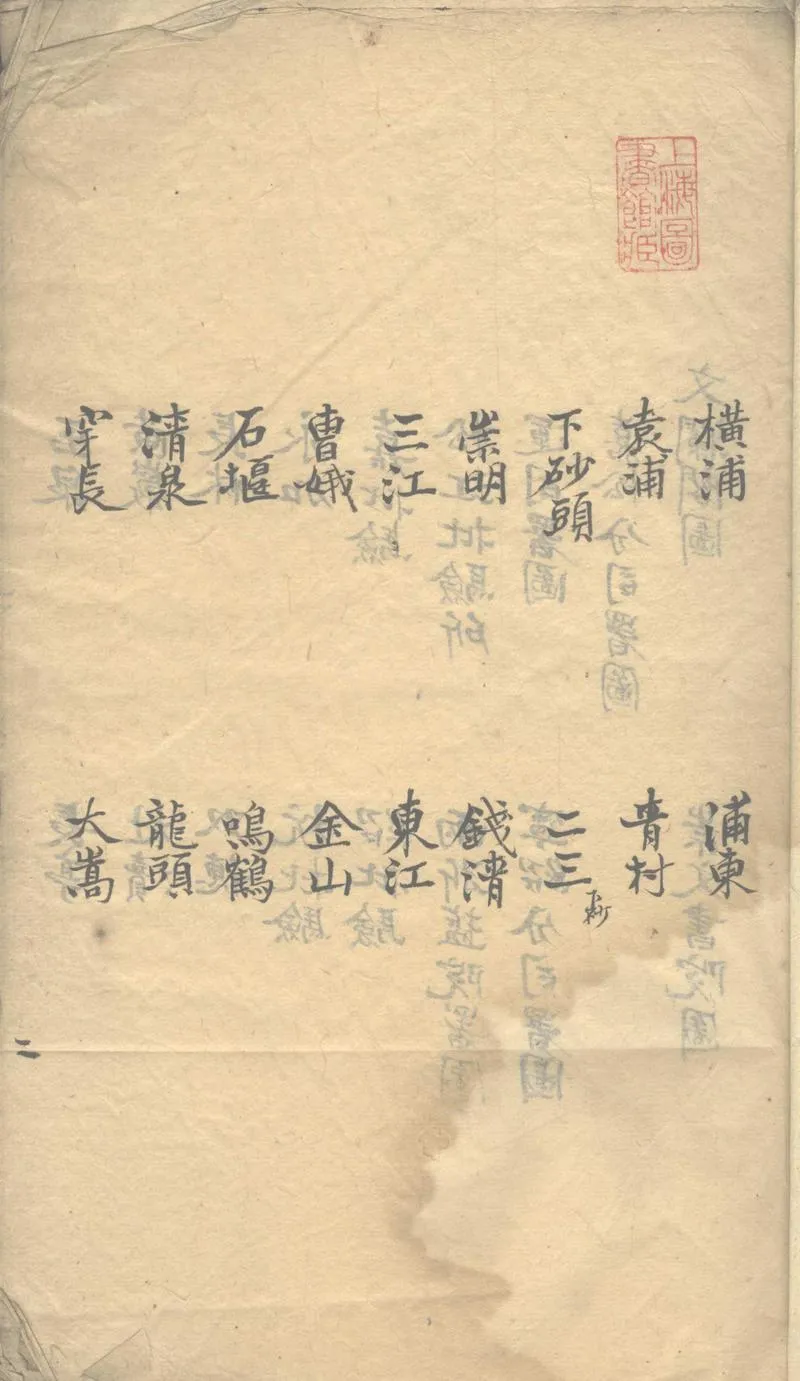 上海圖
書館藏
橫浦
浦東
袁浦
青村
下砂頭
二三
下砂
崇明
錢清
三江
東江
曹娥
金山
石堰
鳴鶴
清泉
龍頭
穿長
大嵩
二